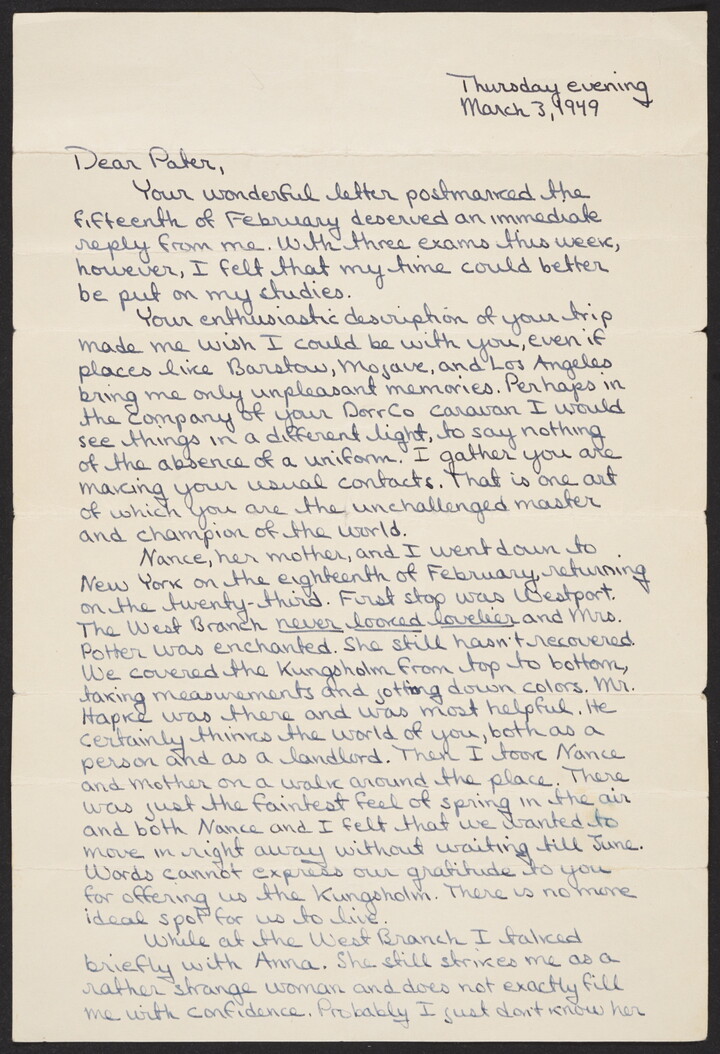 Thursday evening
March 3, 1949
Dear Pater,
Your wonderful letter postmarked the
fifteenth of February deserved an immediate
reply from me. With three exams this week,
however, I felt that my time could better
be put on my studies.
Your enthusiastic description of your trip
made me wish I could be with you, even if
places like Barstow, Mojave, and Los Angeles
bring me only unpleasant memories. Perhaps in
the company of your DorrCo caravan I would
see things in a different light, to say nothing
of the absence of a uniform. I gather you are
making your usual contacts. That is one art
of which you are the unchallenged master
and champion of the world.
Nance, her mother, and I went down to
New York on the eighteenth of February, returning
on the twenty-third. First stop was Westport.
The West Branch never looked lovelier and Mrs.
Potter was enchanted. She still hasn't recovered.
We covered the Kungsholm from top to bottom,
taking measurements and jotting down colors. Mr.
Hapke was there and was most helpful. He
certainly thinks the world of you, both as a
person and as a landlord. Then I took Nance
and Mother on a walk around the place. There
was just the faintest feel of spring in the air
and both Nance and I felt that we wanted to
move in right away without waiting till June.
Words cannot express our gratitude to you
for offering us the Kungsholm. There is no more
ideal spot for us to live.
While at the West Branch I talked
briefly with Anna. She still strikes me as a
rather strange woman and does not exactly fill
me with confidence. Probably I just don't know her